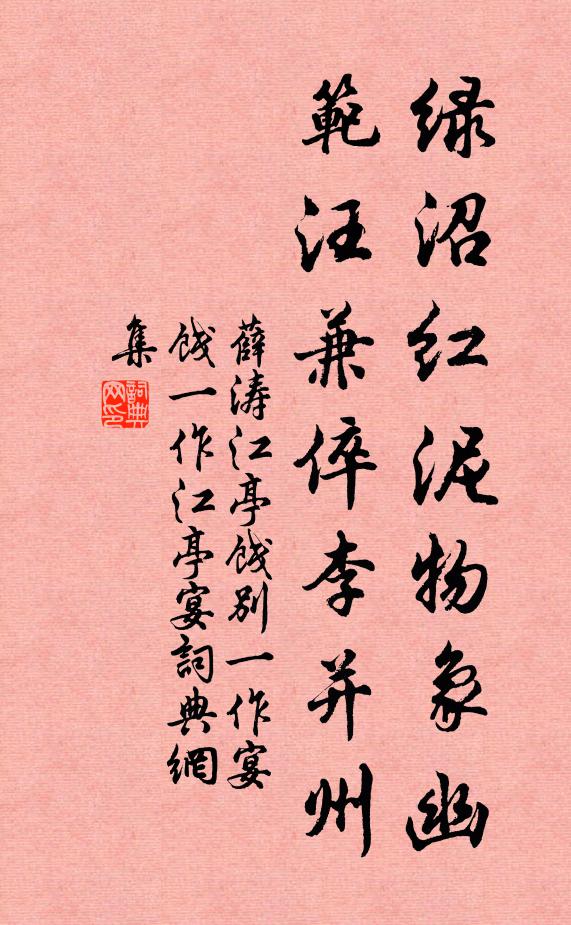 緑沼红泥物象幽
範汪兼倅李并州
薛涛江亭餞别一作宴
餞一作江亭宴詞典網
集
詞典
网印